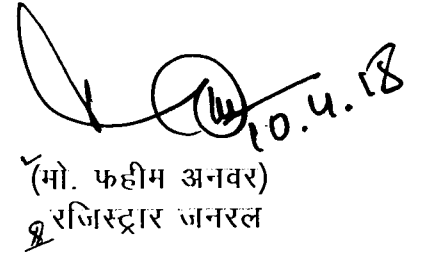 10.4.18
(मो. फहीम अनवर)
रजिस्ट्रार जनरल